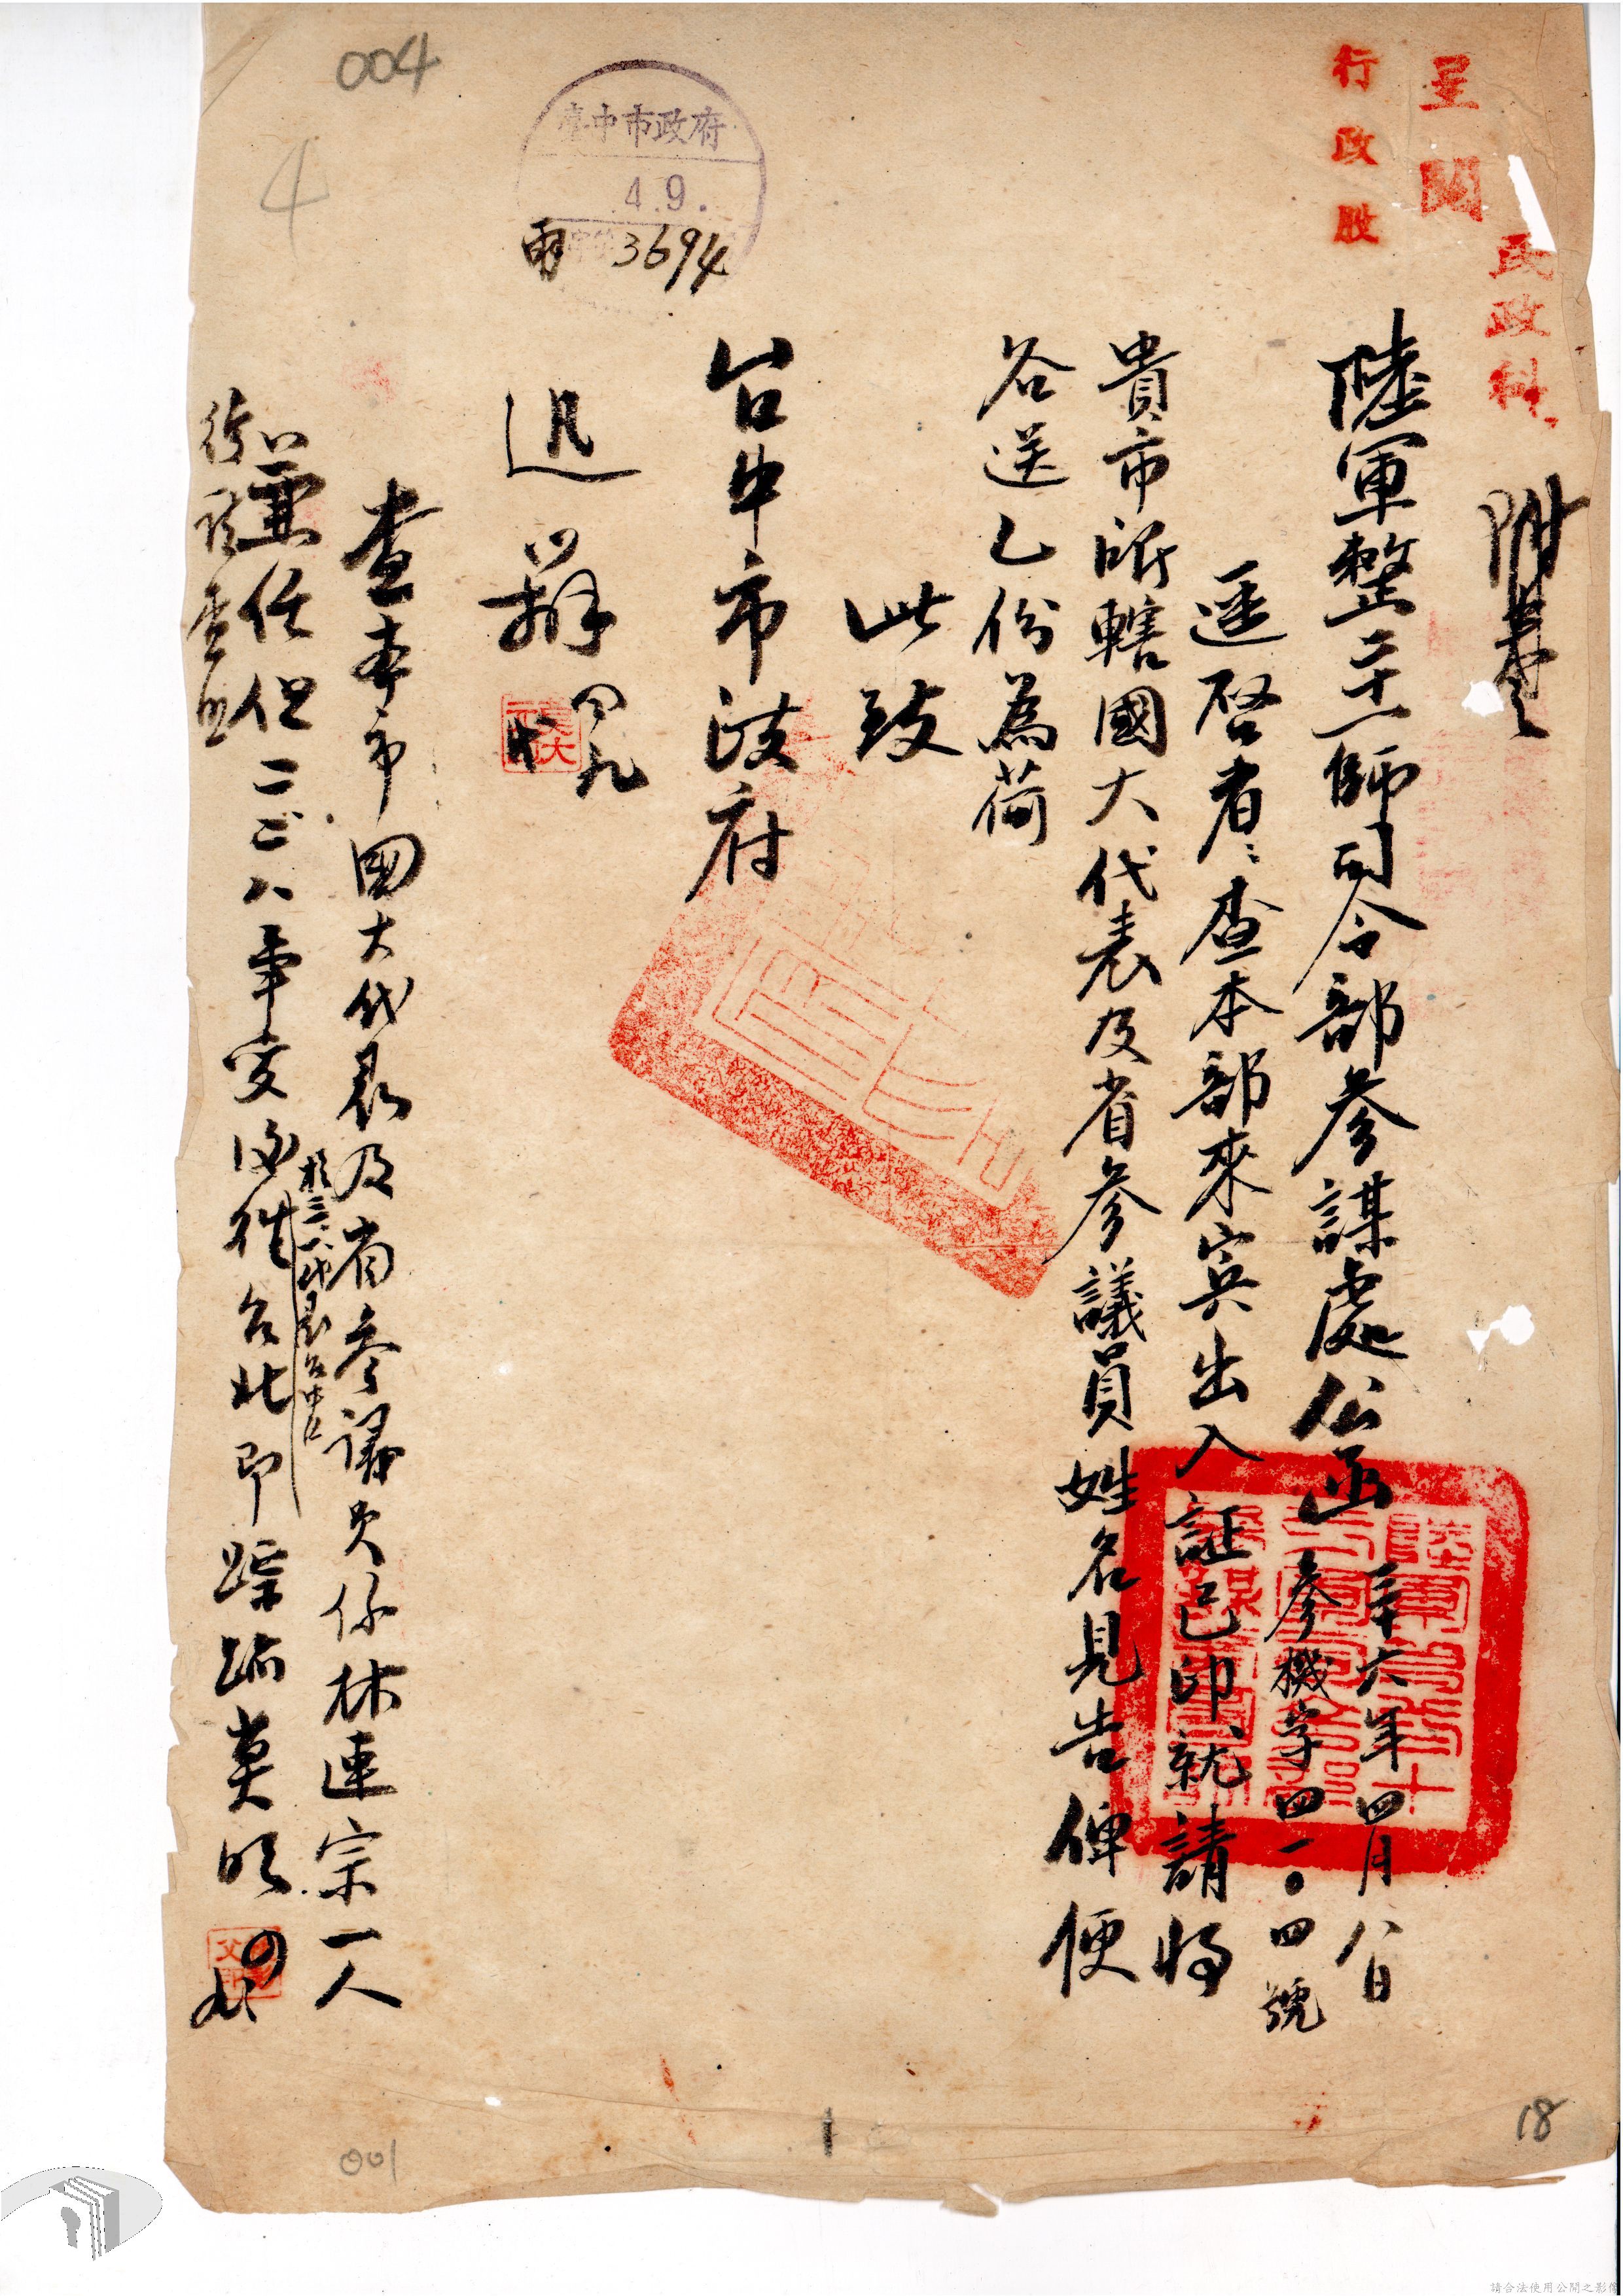 呈閱
民政科
行政股
陸軍整二十一師司令部參謀處公函
卅六年四月八日
參機字四一〇四號
逕啓者：查本部來賓出入証已印就請將
貴市所轄國大代表及省參議員姓名見告俾便
各送乙份為荷
此致
台中市政府
臺中市政府
4.9.
3694
迅辦
四九
查本市國大代表及省參議員係林連宗一人
兼任但二二八事變後往台北即踪跡莫明
004
4
001
1
18
請合法使用公開之影像